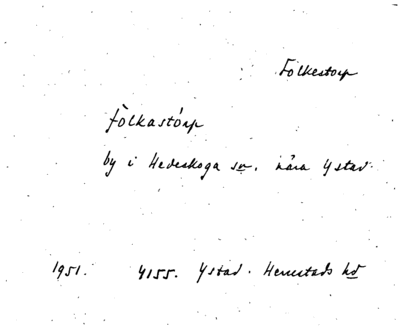 Folkestorp
fòlkastórp
by i Hedeskoga sn. nära Ystad.
1951. 4155. Ystad. Herrestads hd